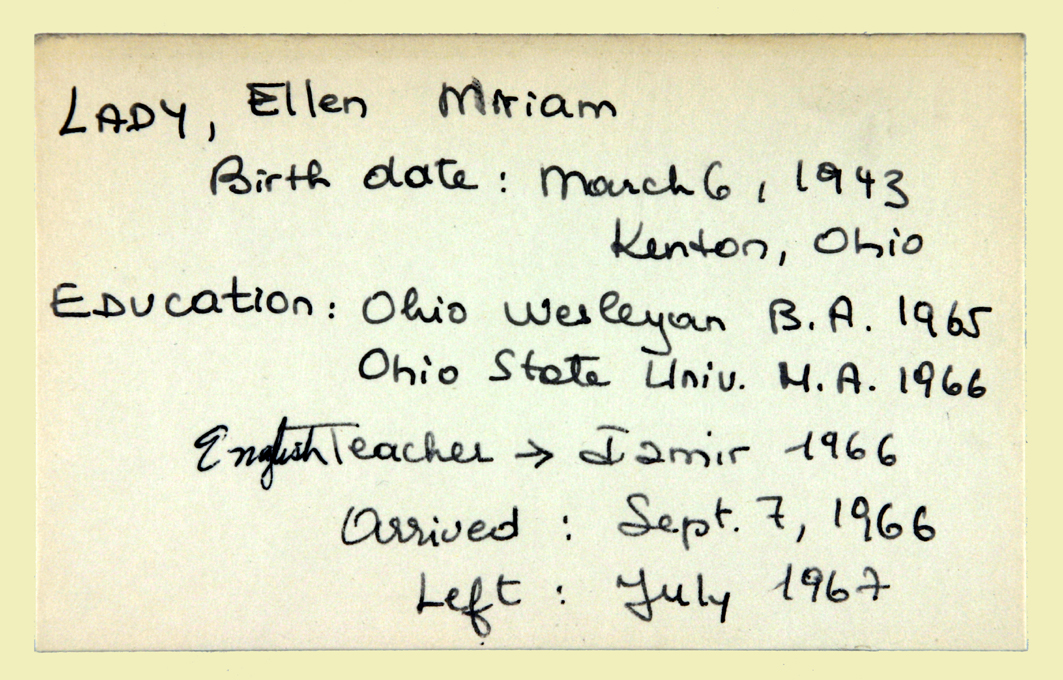 LADY, Ellen Miriam
Birth date: March 6, 1943
Kenton, Ohio
EDucation: Ohio Wesleyan B.A. 1965
Ohio State Univ. M.A. 1966
English Teacher → Izmir 1966
Arrived: Sept. 7, 1966
Left: July 1967